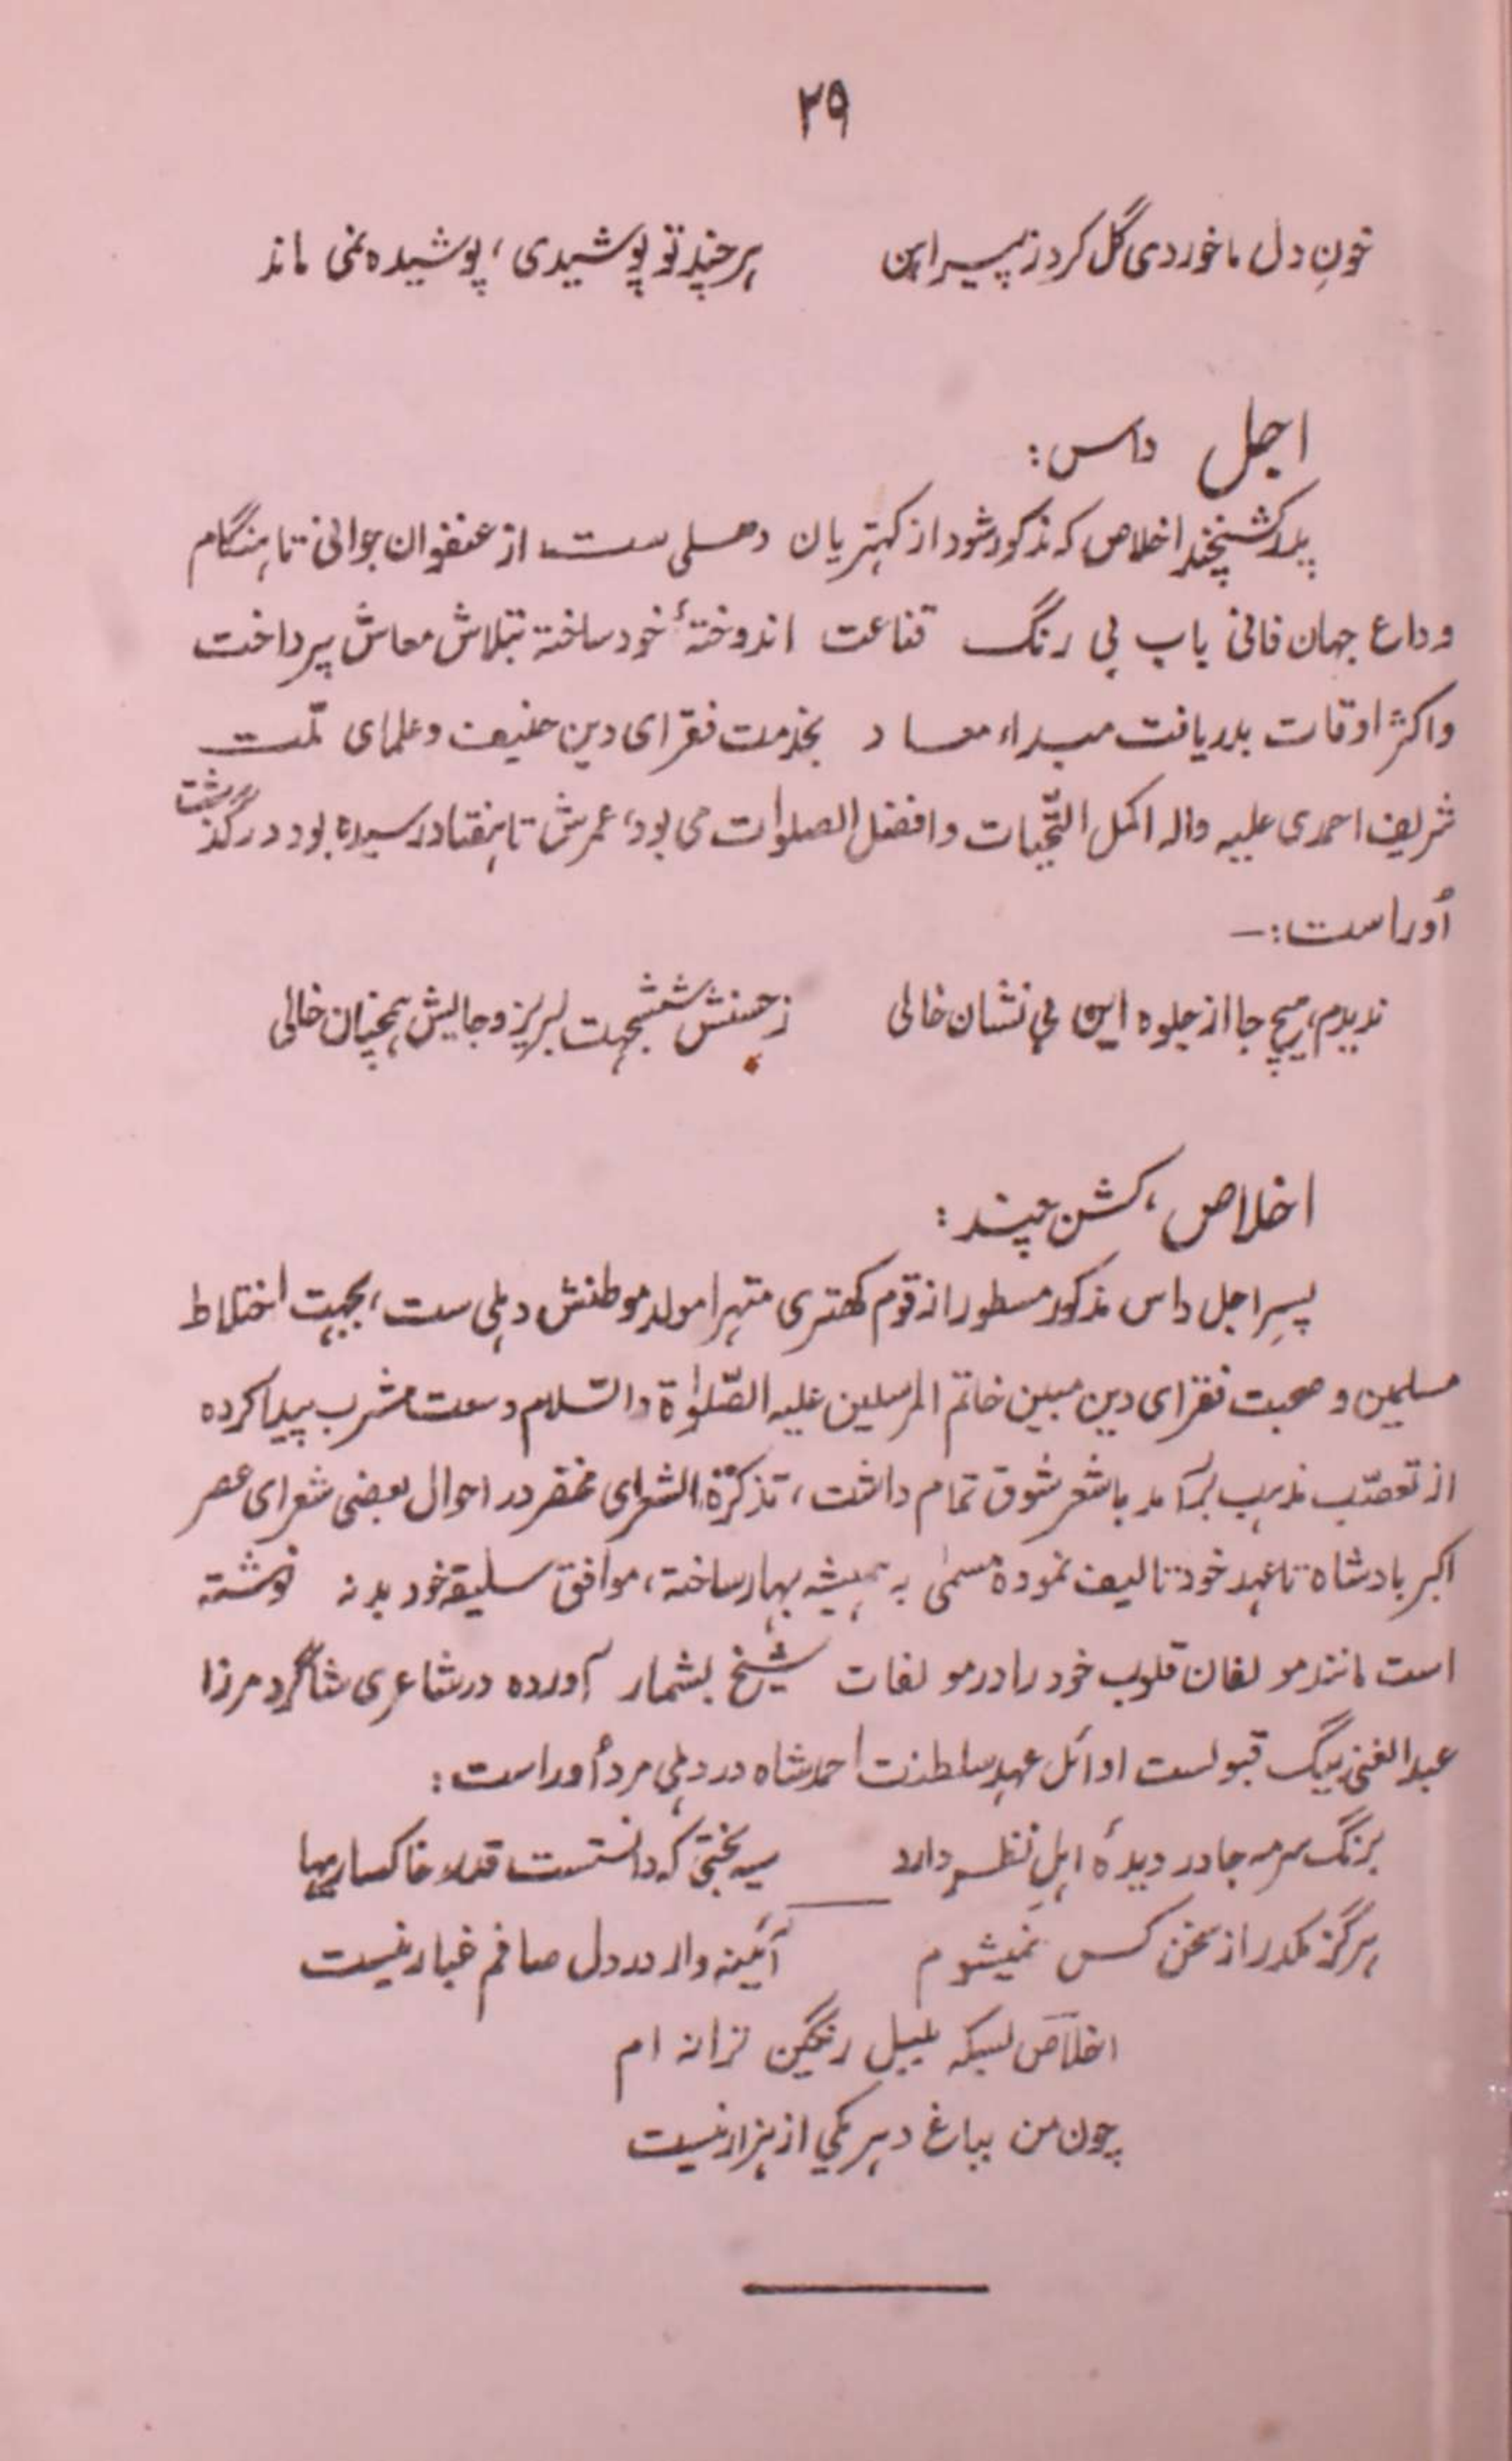 ۲۹
خونِ دل ما خوردی گل کرد ز پیراہن ہر چند تو پوشیدی، پوشیدہ نمی ماند
اجل داس:
پدر کشنچند اخلاص کہ مذکور شود از کہتریان دھلی ست از عنفوان جوانی تا ہنگام
وداع جہان فانی باب بی رنگ قناعت اندوختۂ خود ساختہ بتلاش معاش پرداخت
واکثر اوقات بدریافت مبداء معاد بخدمت فقرای دین حنیف و علمای ملّت
شریف احمدی علیہ والہ اکمل التّحیات وافضل الصلوات می بود، عمرش تا ہفتاد رسیدہ بود درگذشت
اُوراست:—
ندیدم، ہیچ جا از جلوہ این بی نشان خالی ز حسنش ششجہت لبریز و جایش ہمچنان خالی
اخلاص، کشن چند:
پسرِ اجل داس مذکور مسطور از قوم کھتری متہرا مولد موطنش دہلی ست، بجہت اختلاط
مسلمین و صحبت فقرای دین مبین خاتم المرسلین علیہ الصّلوٰۃ والسّلام وسعت مشرب پیدا کردہ
از تعصّب مذہب برآمد با شعر شوق تمام داشت، تذکرۃ الشعرای مختصر در احوال بعضی شعرای عصر
اکبر بادشاہ تا عہد خود تالیف نمودہ مسمٰی بہ ہمیشہ بہار ساختہ، موافق سلیقہ خود بد نہ نوشتہ
است مانند مولفان قلوب خود را در مولفات شیخ بشمار آوردہ در شاعری شاگرد مرزا
عبدالغنی بیگ قبولست اوائل عہد سلطنت احمد شاہ در دہلی مرد اُوراست:
برنگ سرمہ جا در دیدۂ اہلِ نظر دارد سیہ بختی کہ دانستست قدر خاکساریہا
ہرگز مکدر از سخن کس نمیشوم آئینہ وار در دل صافم غبار نیست
اخلاص بسکہ بلبل رنگین ترانہ ام
چون من بباغ دہر یکی از ہزار نیست